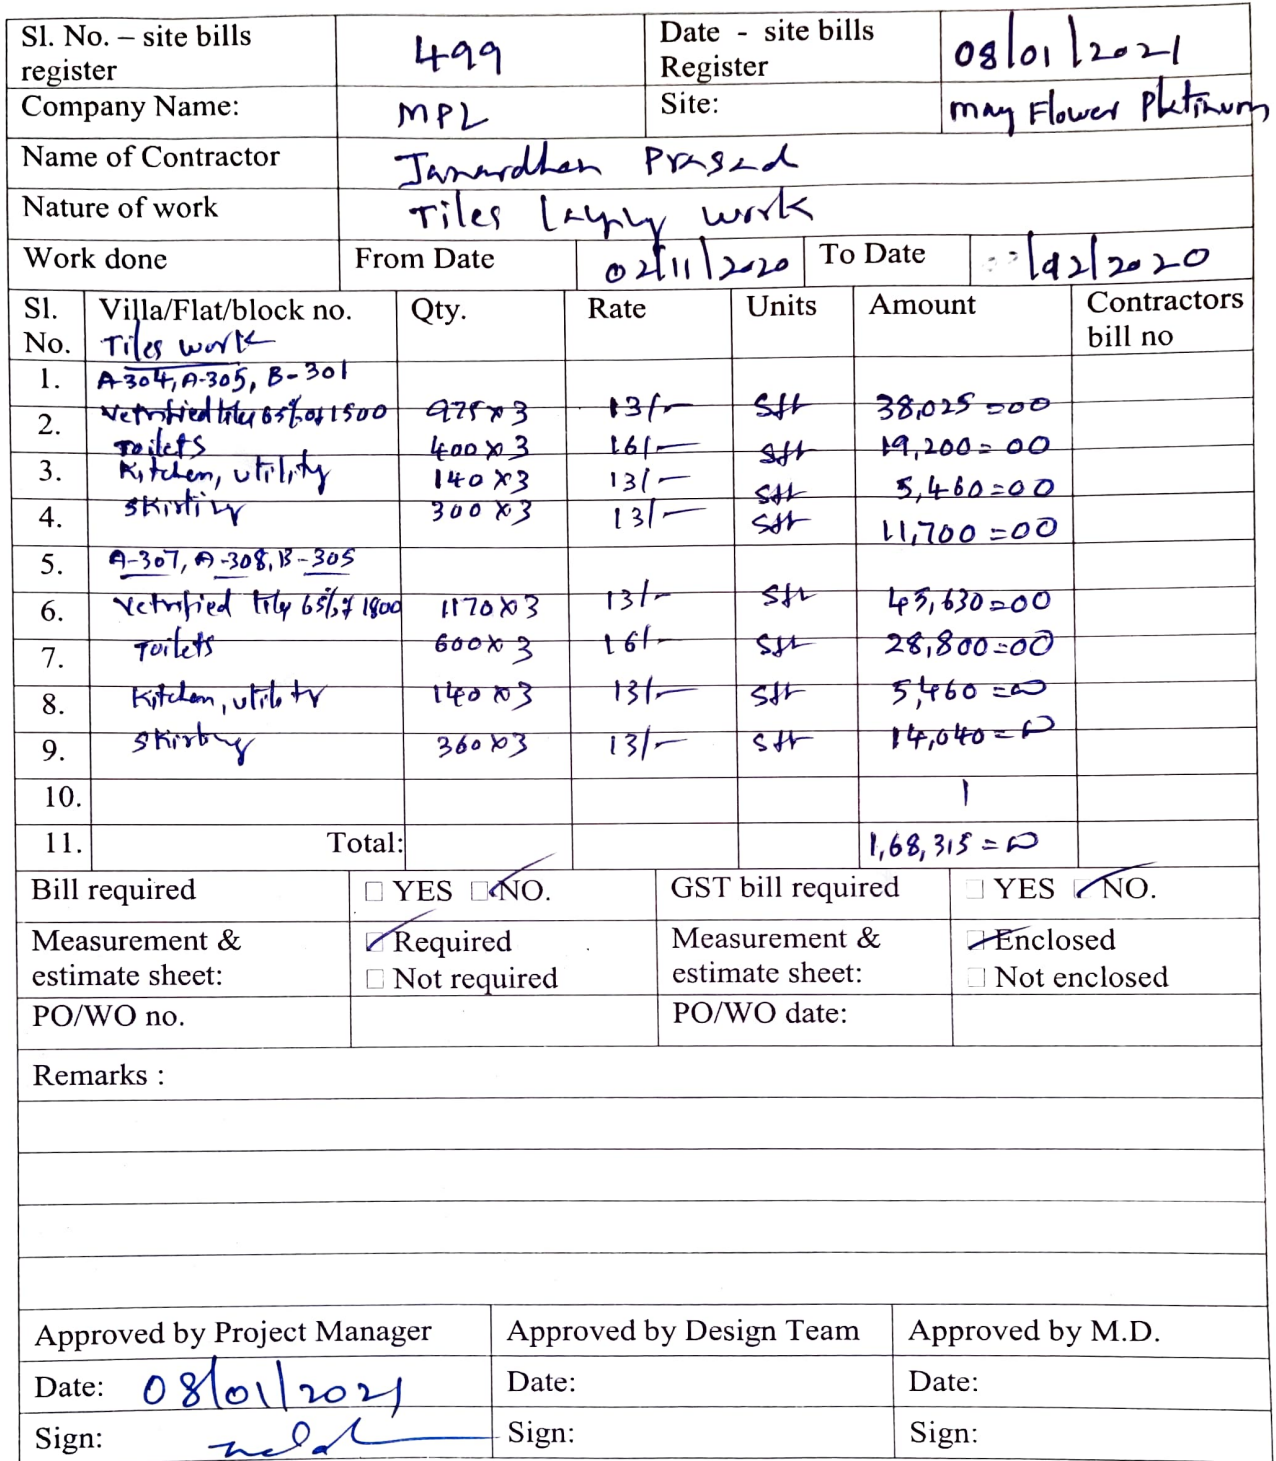 Sl. No. – site bills register 499 Date - site bills Register 08/01/2021
Company Name: MPL Site: May Flower Platinum
Name of Contractor Janardhan Prasad
Nature of work Tiles laying work
Work done From Date 02/11/2020 To Date /2020
Sl. No. Villa/Flat/block no. Qty. Rate Units Amount Contractors bill no
Tiles work
1. A-304, A-305, B-301
2. Vetrified tiles 65% of 1500 975x3 13/- Sft 38,025=00
Toilets 400x3 16/- Sft 19,200=00
3. Kitchen, utility 140x3 13/- Sft 5,460=00
4. Skirting 300x3 13/- Sft 11,700=00
5. A-307, A-308, B-305
6. Vetrified tiles 65% of 1800 1170x3 13/- Sft 45,630=00
7. Toilets 600x3 16/- Sft 28,800=00
8. Kitchen, utility 140x3 13/- Sft 5,460=00
9. Skirting 360x3 13/- Sft 14,040=00
10.
11. Total: 1,68,315=00
Bill required YES NO. GST bill required YES NO.
Measurement & estimate sheet: Required Measurement & estimate sheet: Enclosed
Not required Not enclosed
PO/WO no. PO/WO date:
Remarks :
Approved by Project Manager Approved by Design Team Approved by M.D.
Date: 08/01/2021 Date: Date:
Sign: Sign: Sign: